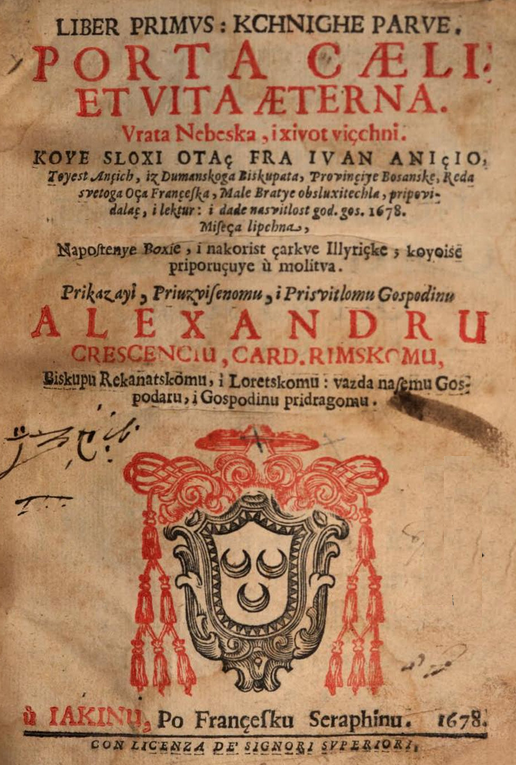 LIBER PRIMVS: KCHNIGHE PARVE.
PORTA CÆLI:
ET VITA ÆTERNA.
Vrata Nebeska, i xivot viçchni.
KOYE SLOXI OTAç FRA IVAN ANIçIO,
Toyest Ançich, iz Dumanskoga Biskupata, Provinçiye Bosanske, Reda
svetoga Oça Françeſka, Male Bratye obsluxitechla, pripovi-
dalaç, i lektur: i dade nasvitlost god. gos. 1678.
Miſeça lipchna,
Napoſtenye Boxie, i nakorist çarkve Illyriçke; koyoiſe
priporuçuye ù molitva.
Prikazayi, Priuzviſenomu, i Prisvitlomu Gospodinu
ALEXANDRU
CRESCENCIU, CARD. RIMSKOMU,
Biskupu Rekanatskomu, i Loretskomu: vazda naſemu Gos-
podaru, i Gospodinu pridragomu.
ù IAKINU, Po Françeſku Seraphinu. 1678.
CON LICENZA DE' SIGNORI SVPERIORI,